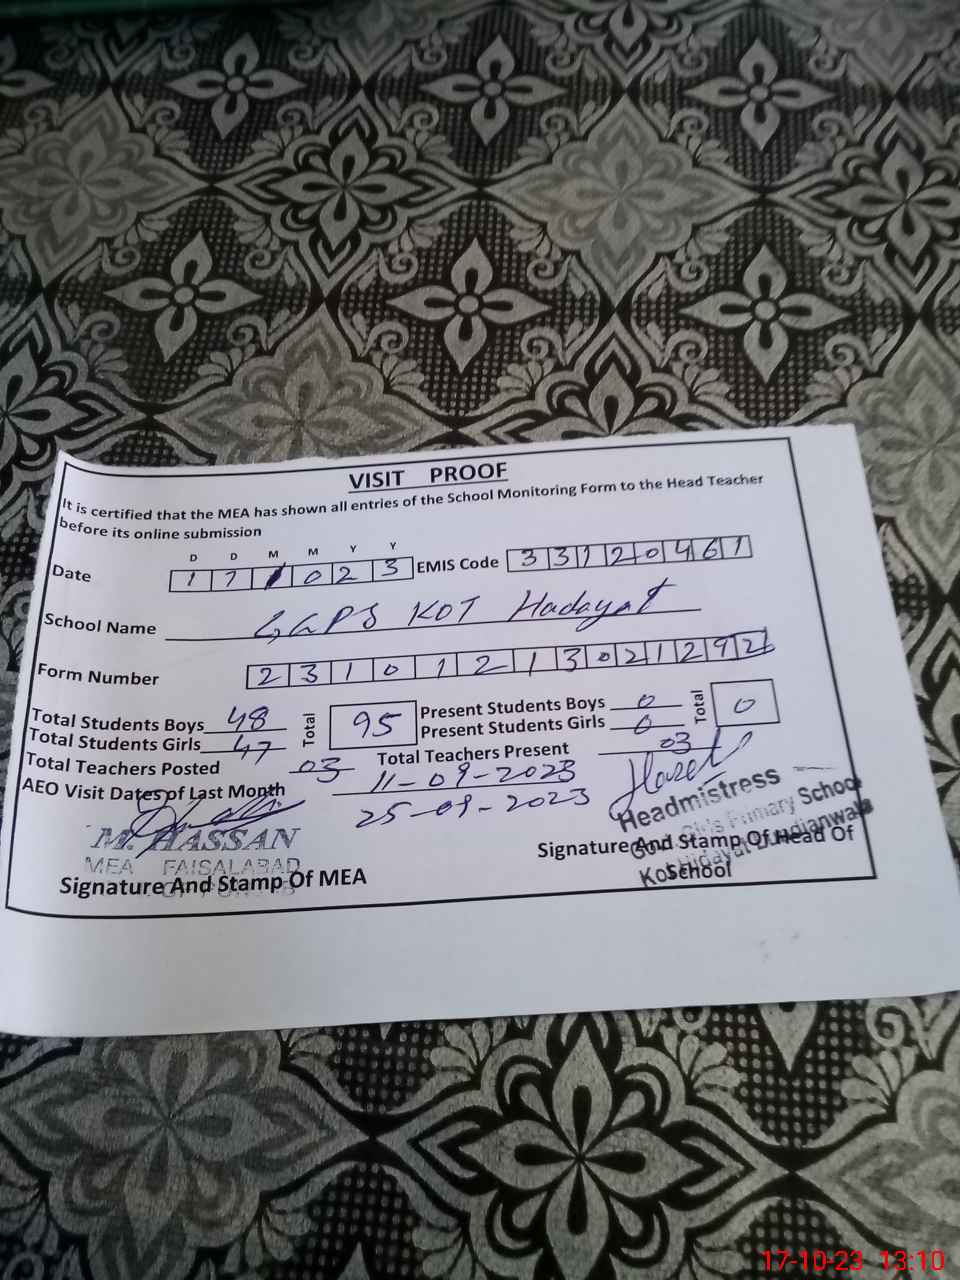 VISIT PROOF
It is certified that the MEA has shown all entries of the School Monitoring Form to the Head Teacher
before its online submission
D D M M Y Y
Date 1 7 1 0 2 3 EMIS Code 3 3 1 2 0 4 6 1
School Name GGPS KOT Hadayat
Form Number 2 3 1 0 1 2 1 3 0 2 1 2 9 2
Total Students Boys 48 Total 95 Present Students Boys 0 Total 0
Total Students Girls 47 Present Students Girls 0
Total Teachers Posted 03 Total Teachers Present 03
AEO Visit Dates of Last Month 11-09-2023
25-09-2023
Headmistress
M. HASSAN Girls Primary School
MEA FAISALABAD Signature And Stamp Of Head Of
Signature And Stamp Of MEA School
17-10-23 13:10